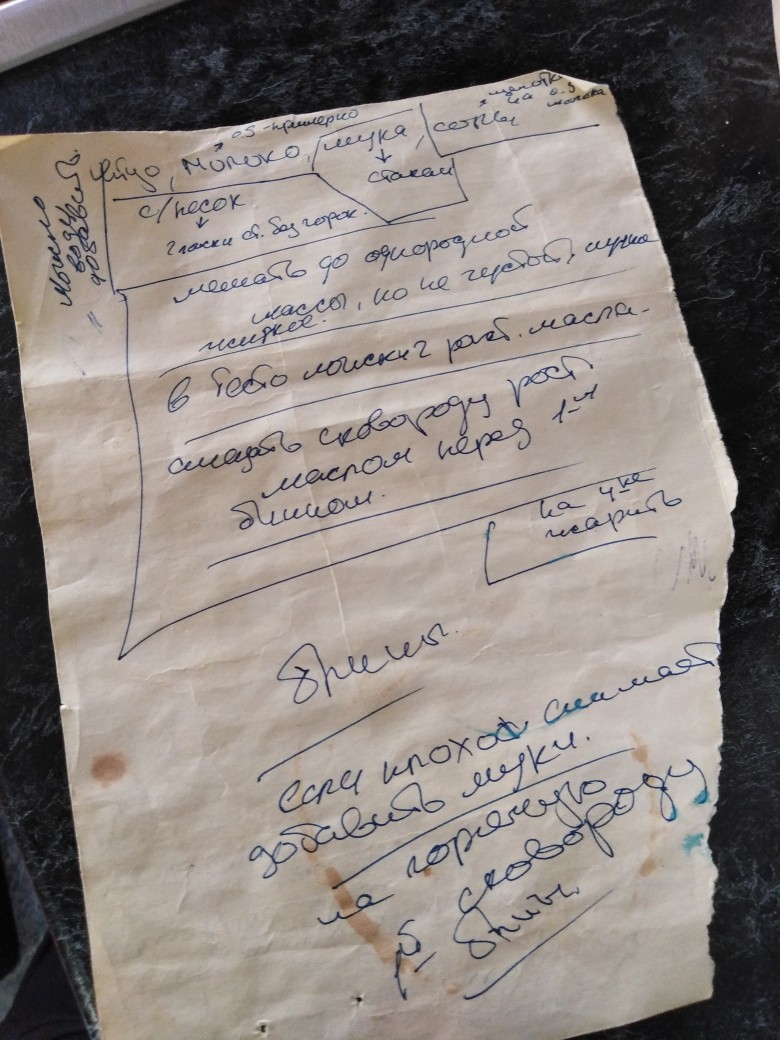 щепотка
на 0.5
молока
0.5 - примерно
яйцо, молоко, мука, соль
стакан
с/песок
2 ложки ст. без горок.
Можно
воды
добавить.
мешать до однородной
массы, но не густой, нужна
жидкее.
в тесто ложки 2 раст. масла.
смазать сковороду раст
маслом перед 1-м
блином.
на 4-ке
жарить
Блины.
если плохо снимает
добавить муки.
на горячую
сковороду
блины.